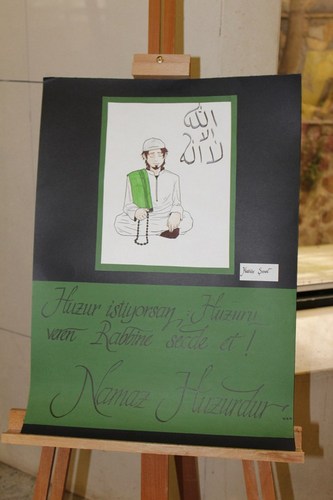 الله
الا
لا اله
Huzur istiyorsan, Huzuru
veren Rabbine secde et !
Namaz Huzurdur...